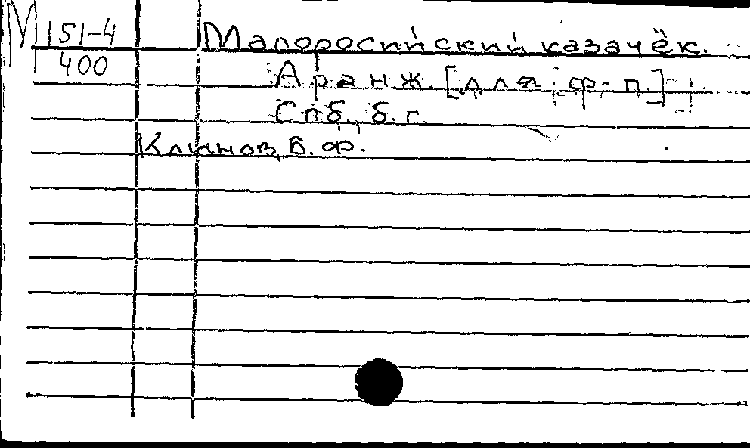 М 151-4 Малоросийский казачёк.
400 Аранж. [для ф.-п.]
Спб., б. г.
Климов, В. Ф.